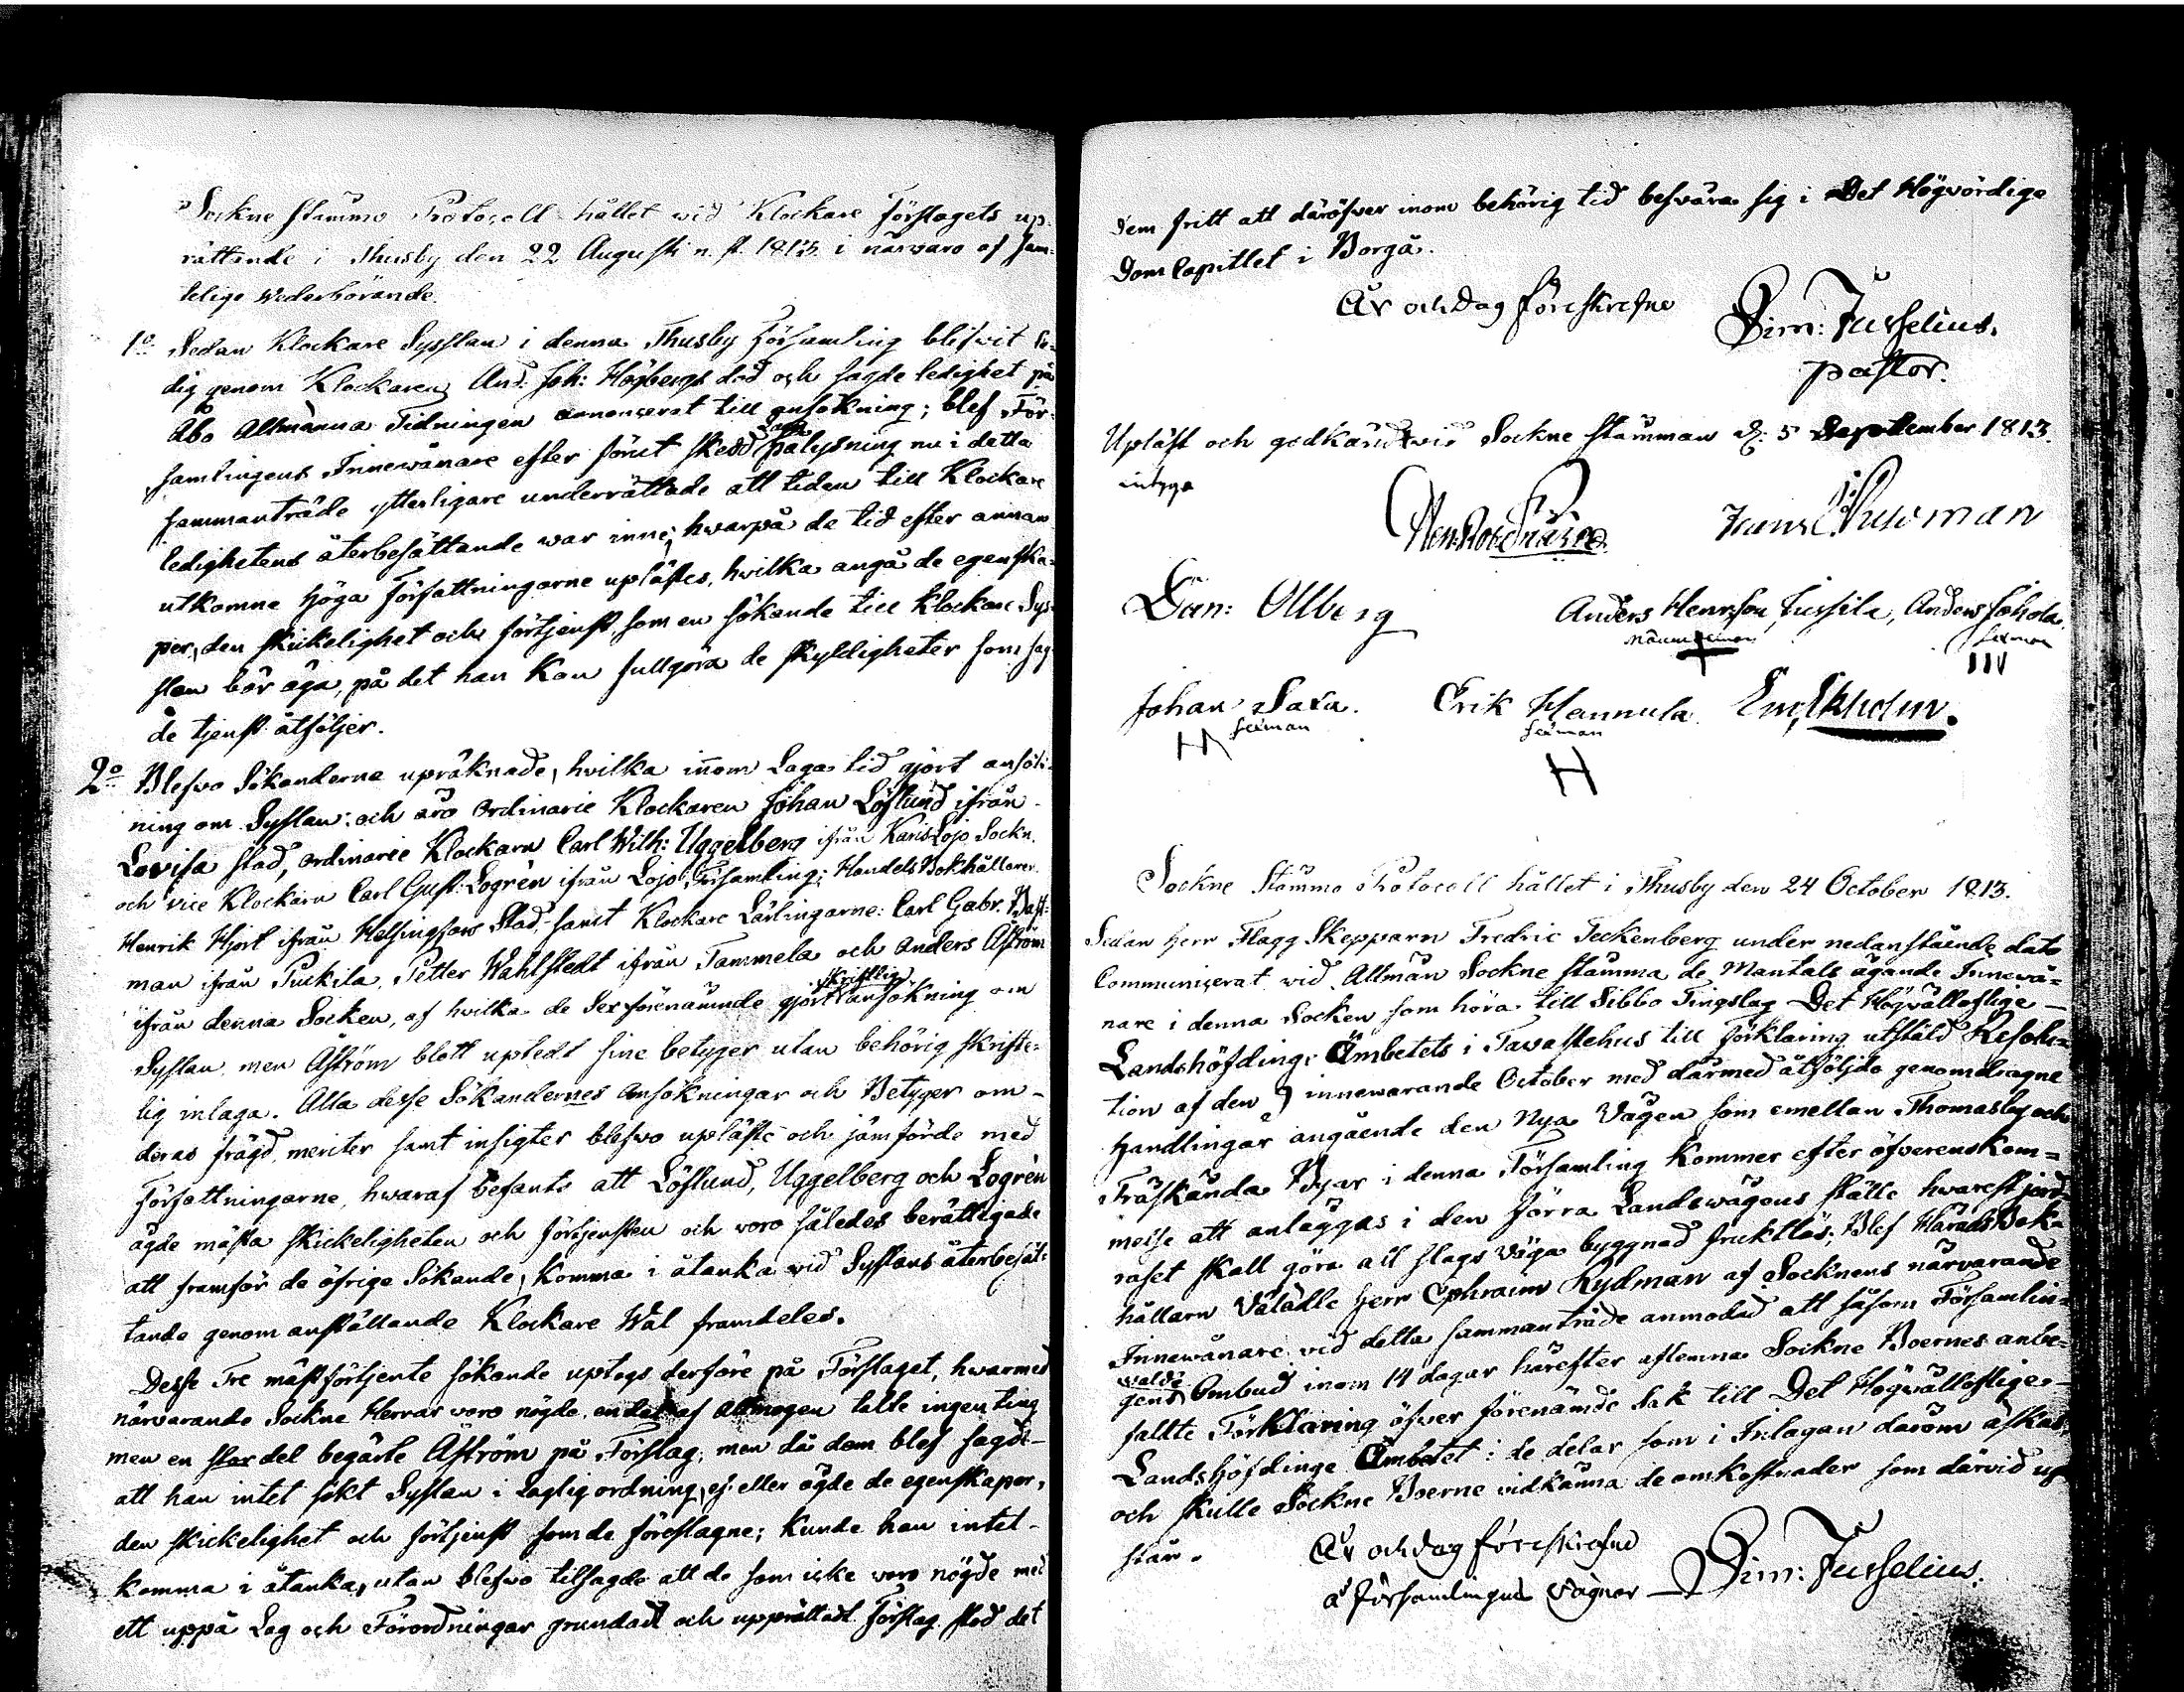 Sockne Stämmo Protocoll hållet vid Klockare Förslagets up-
rättande i Thusby den 22 Augusti n. st. 1813 i närvaro af sam-
telige Wederbörande.
1o Sedan Klockare Sysslan i denna Thusby Församling blifvit le-
dig genom Klockaren And. Joh: Högbergs död och sagde ledighet på
Åbo Allmänna Tidningen annoncerat till ansökning; blef För-
samlingens Innewånare efter förut skedd Laga pålysning nu i detta
sammanträde ytterligare underrättade att tiden till Klockare
ledighetens återbesättande war inne; hwarpå de tid efter annan
utkomne Höga Författningarne uplästes, hvilka angå de egenska-
per, den skickelighet och förtjenst, som en sökande till Klockare Sys-
slan bör äga, på det han kan fullgöra de skyldigheter som sag-
de tjenst åtföljer.
2o Blefvo Sökanderne upräknade, hvilka innom Laga tid gjort ansök-
ning om Sysslan: och äro Ordinarie Klockaren Johan Löflund ifrån
Lovisa stad, ordinarie Klockaren Carl Wilh: Uggelberg ifrån KarisLojo Sockn.
och vice Klockaren Carl Gust: Logrén ifrån Lojo Församling; Handels Bokhållaren
Henrik Hjort ifrån Helsingfors Stad, samt Klockare Lärlingarne: Carl Gabr. Bast-
man ifrån Puckila, Petter Wahlstedt ifrån Tammela och Anders Åström
ifrån denna Socken, af hvilka de Sex förenämnde gjort skriftlig ansökning om
Sysslan, men Åström blott uptedt sine betyger utan behörig skrifte-
lig inlaga. Alla desse Sökandernes Ansökningar och Betyger om
deras frägd, meriter samt insigter blefvo upläste och jämförde med
Författningarne, hwaraf befants att Löflund, Uggelberg och Logrén
ägde mästa skickeligheten och förtjensten och voro således berättigade
att framför de öfrige Sökande, komma i åtanka vid Sysslans återbesät-
tande genom anställande Klockare Wal framdeles.
Desse Tre mäst förtjente sökande uptogs derföre på Förslaget, hwarmed
närvarande Sockne Herrar voro nögde, en del af Allmogen talte ingenting
men en stor del begärte Åström på Förslag, men då dem blef sagdt
att han intet sökt Sysslan i laglig ordning, ej eller ägde de egenskaper,
den skickelighet och förtjenst som de föreslagne; kunde han intet
komma i åtanka, utan blefvo tilsagde att de som icke voro nögde med
ett uppå Lag och Förordningar grundadt och upprättadt Förslag, stod det
dem fritt att däröfver inom behörig tid besvära sig i Det Högvördige
Dom Capitlet i Borgå.
År och Dag förskrefne
Sim: Jusselius.
pastor.
Upläst och godkändt vid Sockne Stämman d. 5 September 1813.
intyga
Dan: Ollberg
Anders Henrsson Jussila, Anders Johola
Nämndeman
sexman
Johan Saxa. Erik Hannula. Em. Ekholm.
sexman
sexman
Sockne Stämmo Protocoll hållet i Thusby den 24 October 1813.
Sedan Herr Flagg Skepparn Fredric Teckenberg under nedanstående dato
Communicerat vid Allmän Sockne stämma de Mantals ägande Innewå-
nare i denna Socken som höra till Sibbo Tingslag Det Högvällofliga
Landshöfdinge Ämbetets i Tavastehus till Förklaring utstäld Resolu-
tion af den 9 innewarande October med därmed åtföljde genomdragne
Handlingar angående den Nya Vägen som emellan Thomasby och
Träskända Byar i denna Församling kommer efter öfverenskom-
melse att anläggas i den Förra Landswägens ställe hwarest jord-
raset skall göra all slags väga byggnad fruktlös; Blef Härads Bok-
hållarn Välädle Herr Ephraim Rydman af Socknens närvarande
Innewånare vid detta sammanträde anmodad att såsom Församlin-
gens walde Ombud inom 14 dagar härefter aflemna Sockne Boernes anbe-
fallte Förklaring öfver förenämde sak till Det Högvällofliga
Landshöfdinge Ämbetet i de delar som i Inlagan därom äskas,
och skulle Sockne Boerne vidkänna de omkostnader som därvid up
stå.
År och dag förskrefne
å Församlingens vägnar Sim: Jusselius.